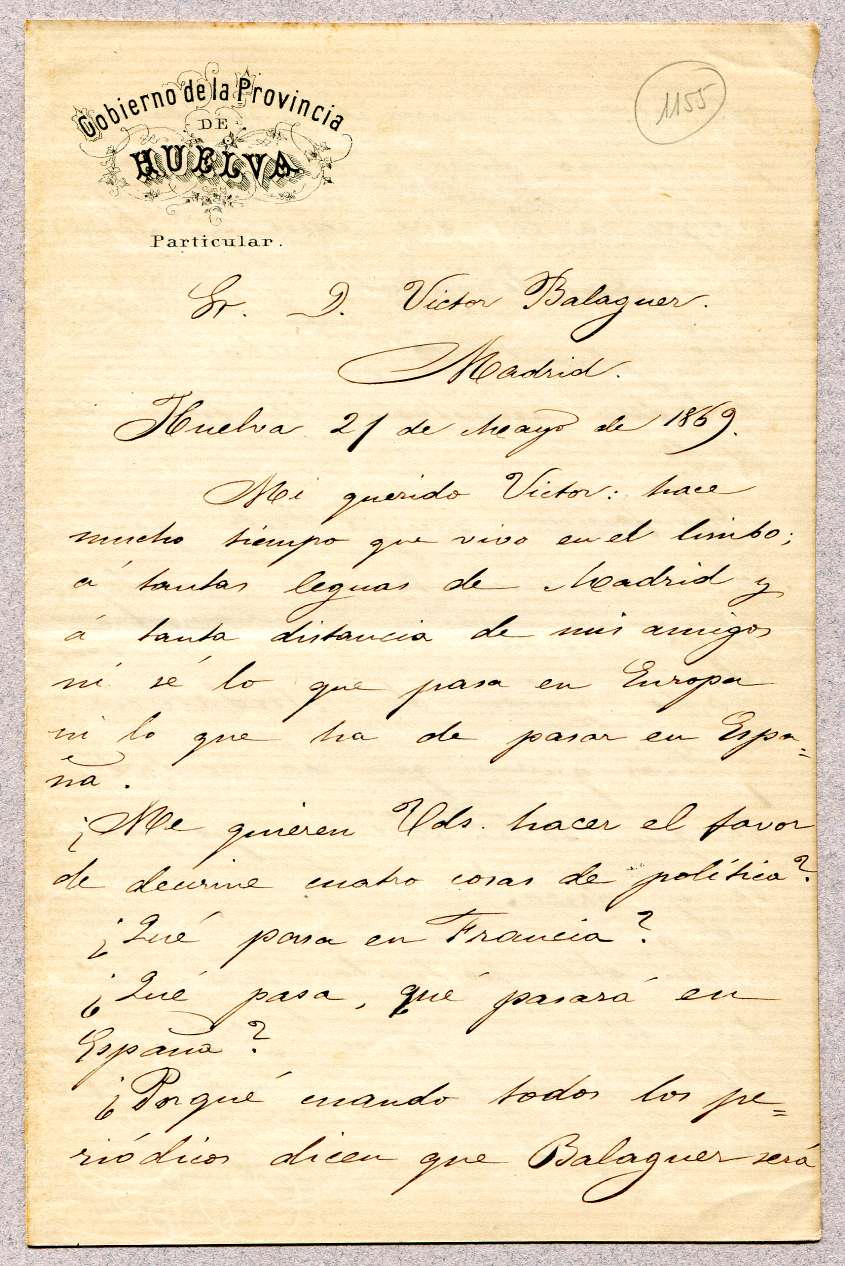 Gobierno de la Provincia
DE
HUELVA
Particular.
1155
Sr. D. Victor Balaguer.
Madrid.
Huelva 21 de Mayo de 1869.
Mi querido Victor: hace
mucho tiempo que vivo en el limbo;
á tantas leguas de Madrid y
á tanta distancia de mis amigos
ni sé lo que pasa en Europa
ni lo que ha de pasar en Espa=
ña.
¿Me quieren Uds. hacer el favor
de decirme cuatro cosas de política?
¿Qué pasa en Francia?
¿Qué pasa, qué pasará en
España?
¿Porqué cuando todos los pe=
riódicos dicen que Balaguer será